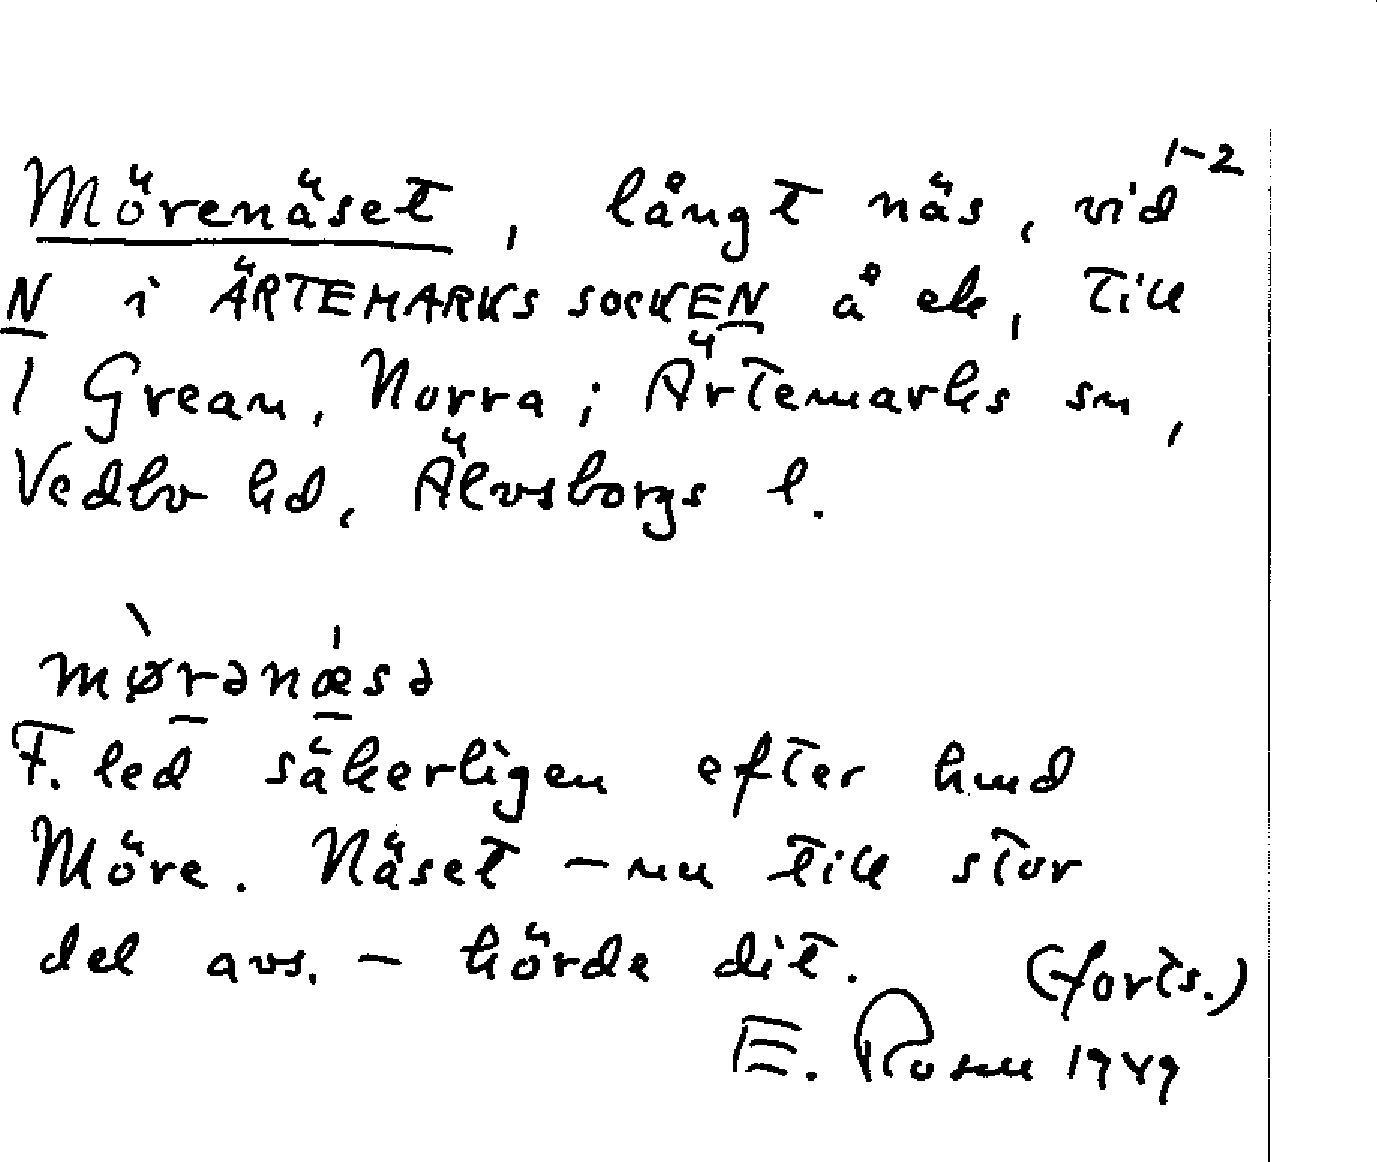 1-2
Mörenäset, långt näs, vid
N i ÄRTEMARKS SOCKEN å ek, till
1 Grean, Norra; Ärtemarks sn,
Vedbo hd, Älvsborgs l.
mørənæsə
F. led säkerligen efter hmd
Möre. Näset – nu till stor
del avs. – hörde dit. (forts.)
E. Rosen 1949